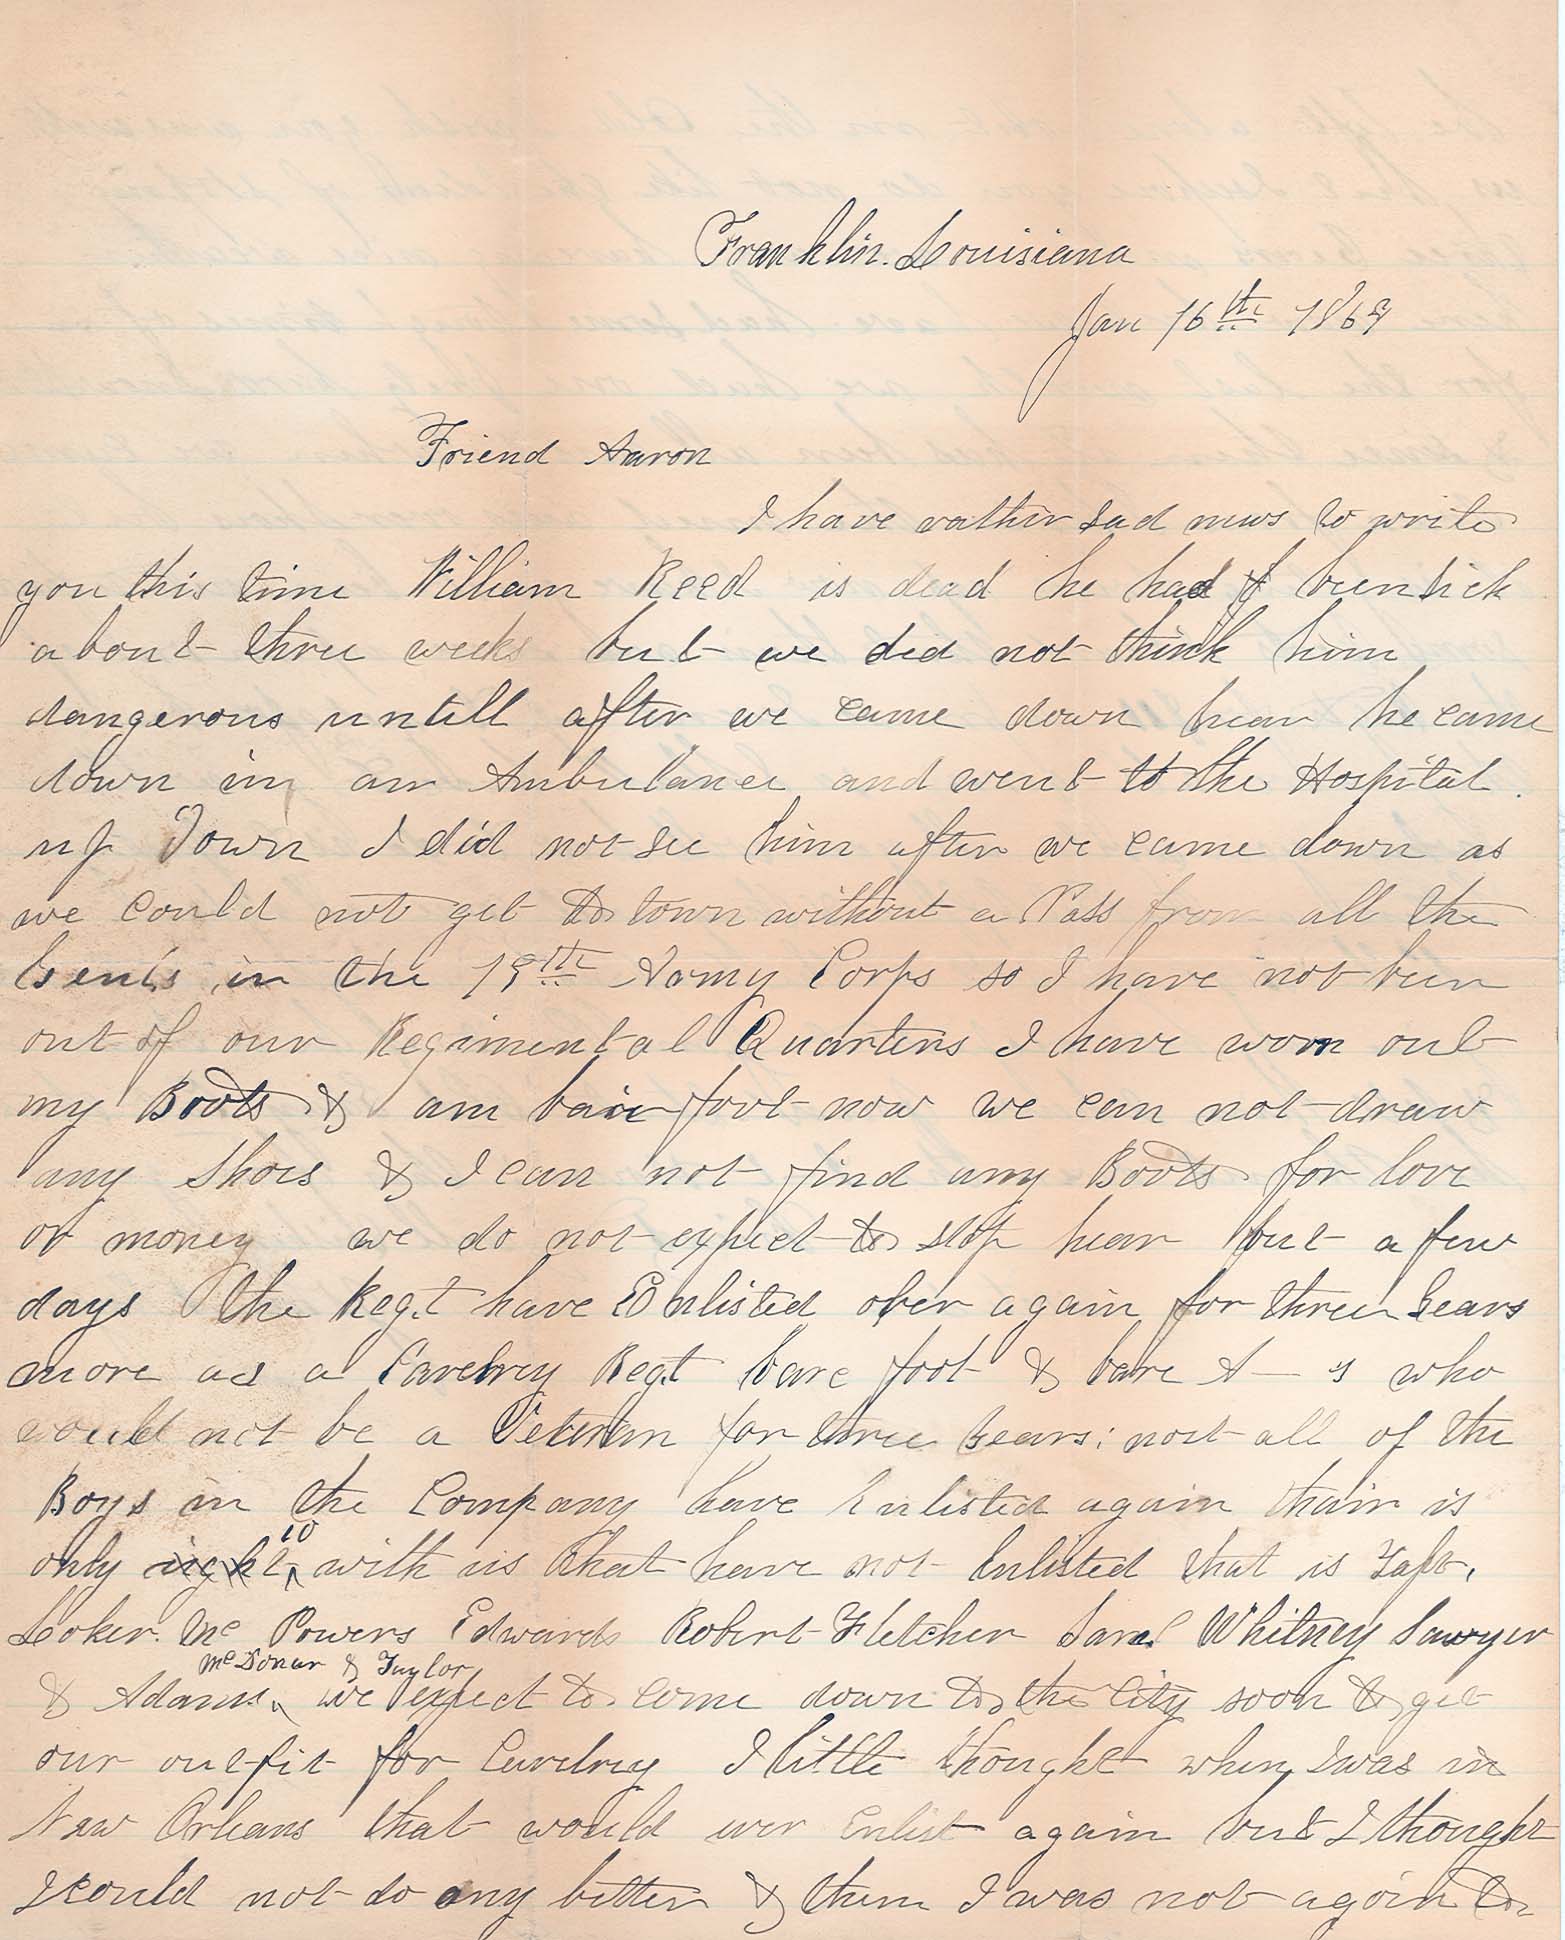 Franklin. Louisiana
Jan 16th 1864
Friend Aaron
I have rather sad news to write
you this time William Reed is dead he had been sick
about three weeks but we did not think him
dangerous untill after we came down hear he came
down in an Ambulance and went to the Hospital
up Town I did not see him after we came down as
we could not get to town without a Pass from all the
Genls in the 19th Army Corps so I have not been
out of our Regimental Quarters I have worn out
my Boots & am bair foot now we can not draw
any Shoes & I can not find any Boots for love
or money we do not expect to stop hear but a few
days the Regt have Enlisted over again for three Years
more as a Cavelrey Regt bare foot & bare A—s who
would not be a Veteran for three Years: most all of the
Boys in the Company have Enlisted again thair is
only 10 with us that have not Enlisted that is Taft,
Loker. Mc Powers Edwards Robert Fletcher Whitney Sawyer
McDonar & Taylor
& Adams, we expect to come down to the City soon to get
our outfit for Cavelrey I little thought when I was in
New Orleans that would ever Enlist again but I thought
I could not do any better & then I was not agoin to